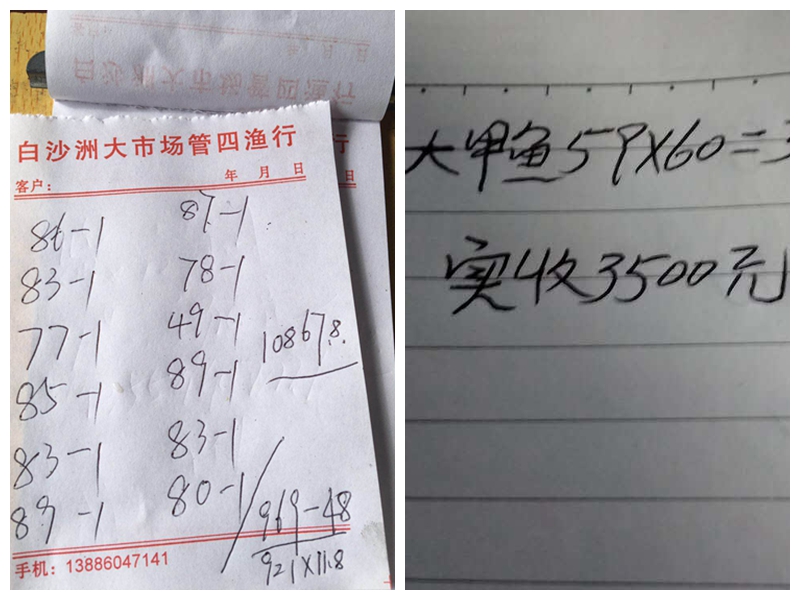 白沙洲大市场管四渔行
行
客户： 年 月 日
日
86-1 87-1
83-1 78-1
77-1 49-1
85-1 89-1
10867.8.
83-1 83-1
89-1 80-1
969-48
921×11.8
手机：13886047141
大甲鱼59X60=3
实收3500元